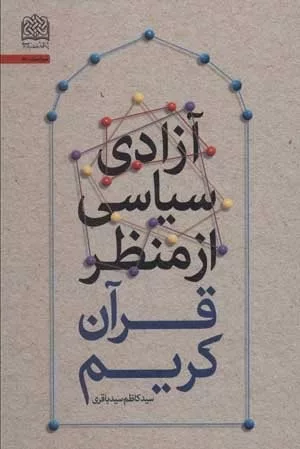 آزادی
سیاسی
از منظر
قرآن
کریم
سیدکاظم سیدباقری